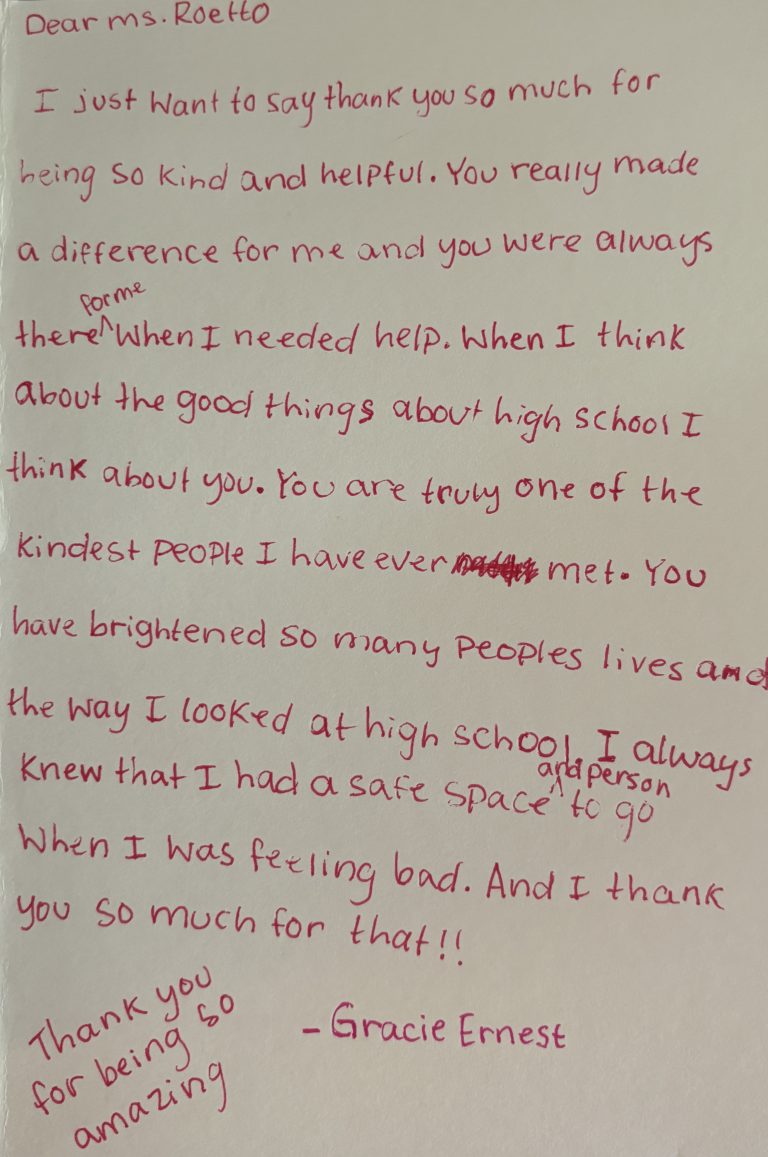 Dear ms. Roetto
I just want to say thank you so much for
being so kind and helpful. You really made
a difference for me and you were always
for me
there^when I needed help. When I think
about the good things about high school I
think about you. You are truly one of the
kindest people I have ever met. You
have brightened so many peoples lives and
the way I looked at high school. I always
and person
knew that I had a safe space^to go
when I was feeling bad. And I thank
you so much for that!!
- Gracie Ernest
Thank you
for being so
amazing